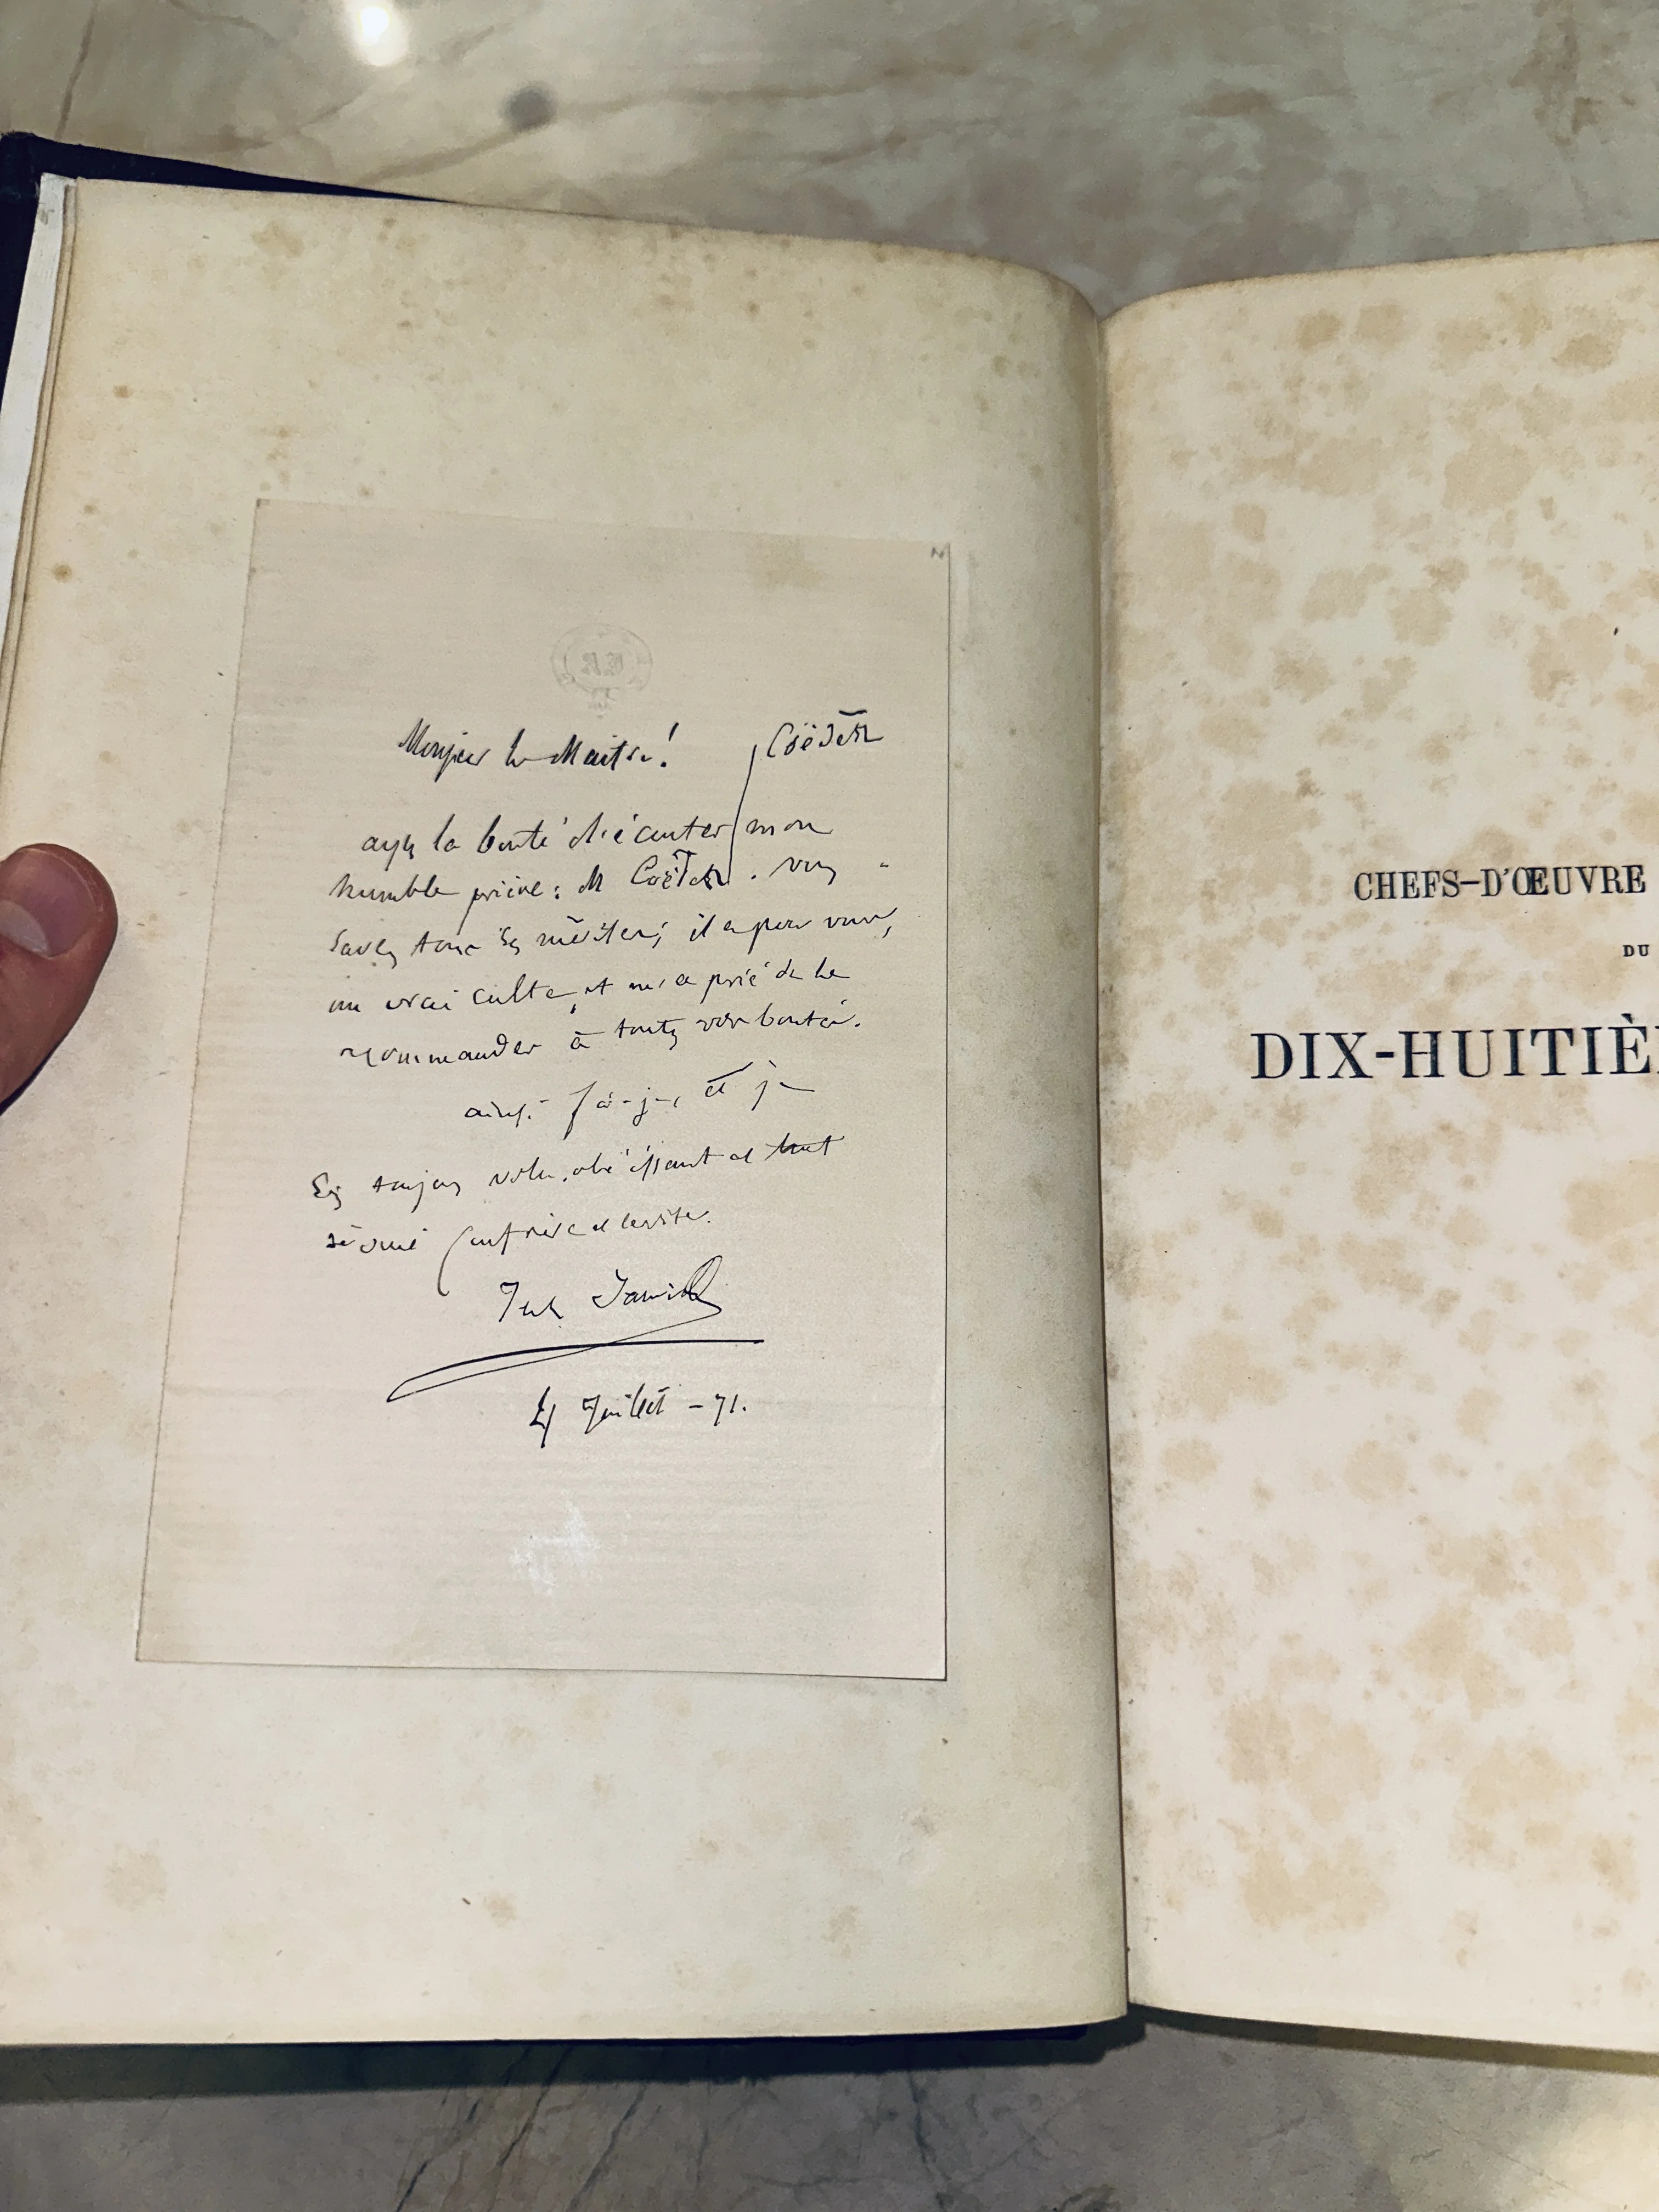 Monsieur le Maître!
Coëdès
ayez la bonté d'écouter mon
humble prière: M Coëdès. Vous
Savez tous ses mérites; il a pour vous,
un vrai culte, et m'a prié de le
recommander à toutes vos bontés.
ainsi fais-je, et je
Suis toujours votre obéissant et tout
dévoué confrère et
Jules Janin
Juillet – 71.
CHEFS-D'ŒUVRE
DU
DIX-HUITIÈ